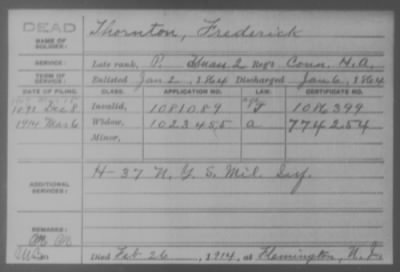 DEAD Thornton, Frederick
NAME OF SOLDIER:
SERVICE: Late rank, P. Hvass 2 Reg't Conn. H.A.
TERM OF SERVICE: Enlisted Jan 2, 1864 Discharged Jan 6, 1864
DATE OF FILING. CLASS. APPLICATION NO. LAW. CERTIFICATE NO.
1891 Dec 8 Invalid, 1081089 J 1086399
1914 Mar 6 Widow, 1023455 a 774254
Minor,
ADDITIONAL SERVICES: H-37 N.Y.S. Mil. Inf.
REMARKS:
Died Feb 26, 1914, at Flemington, N.J.